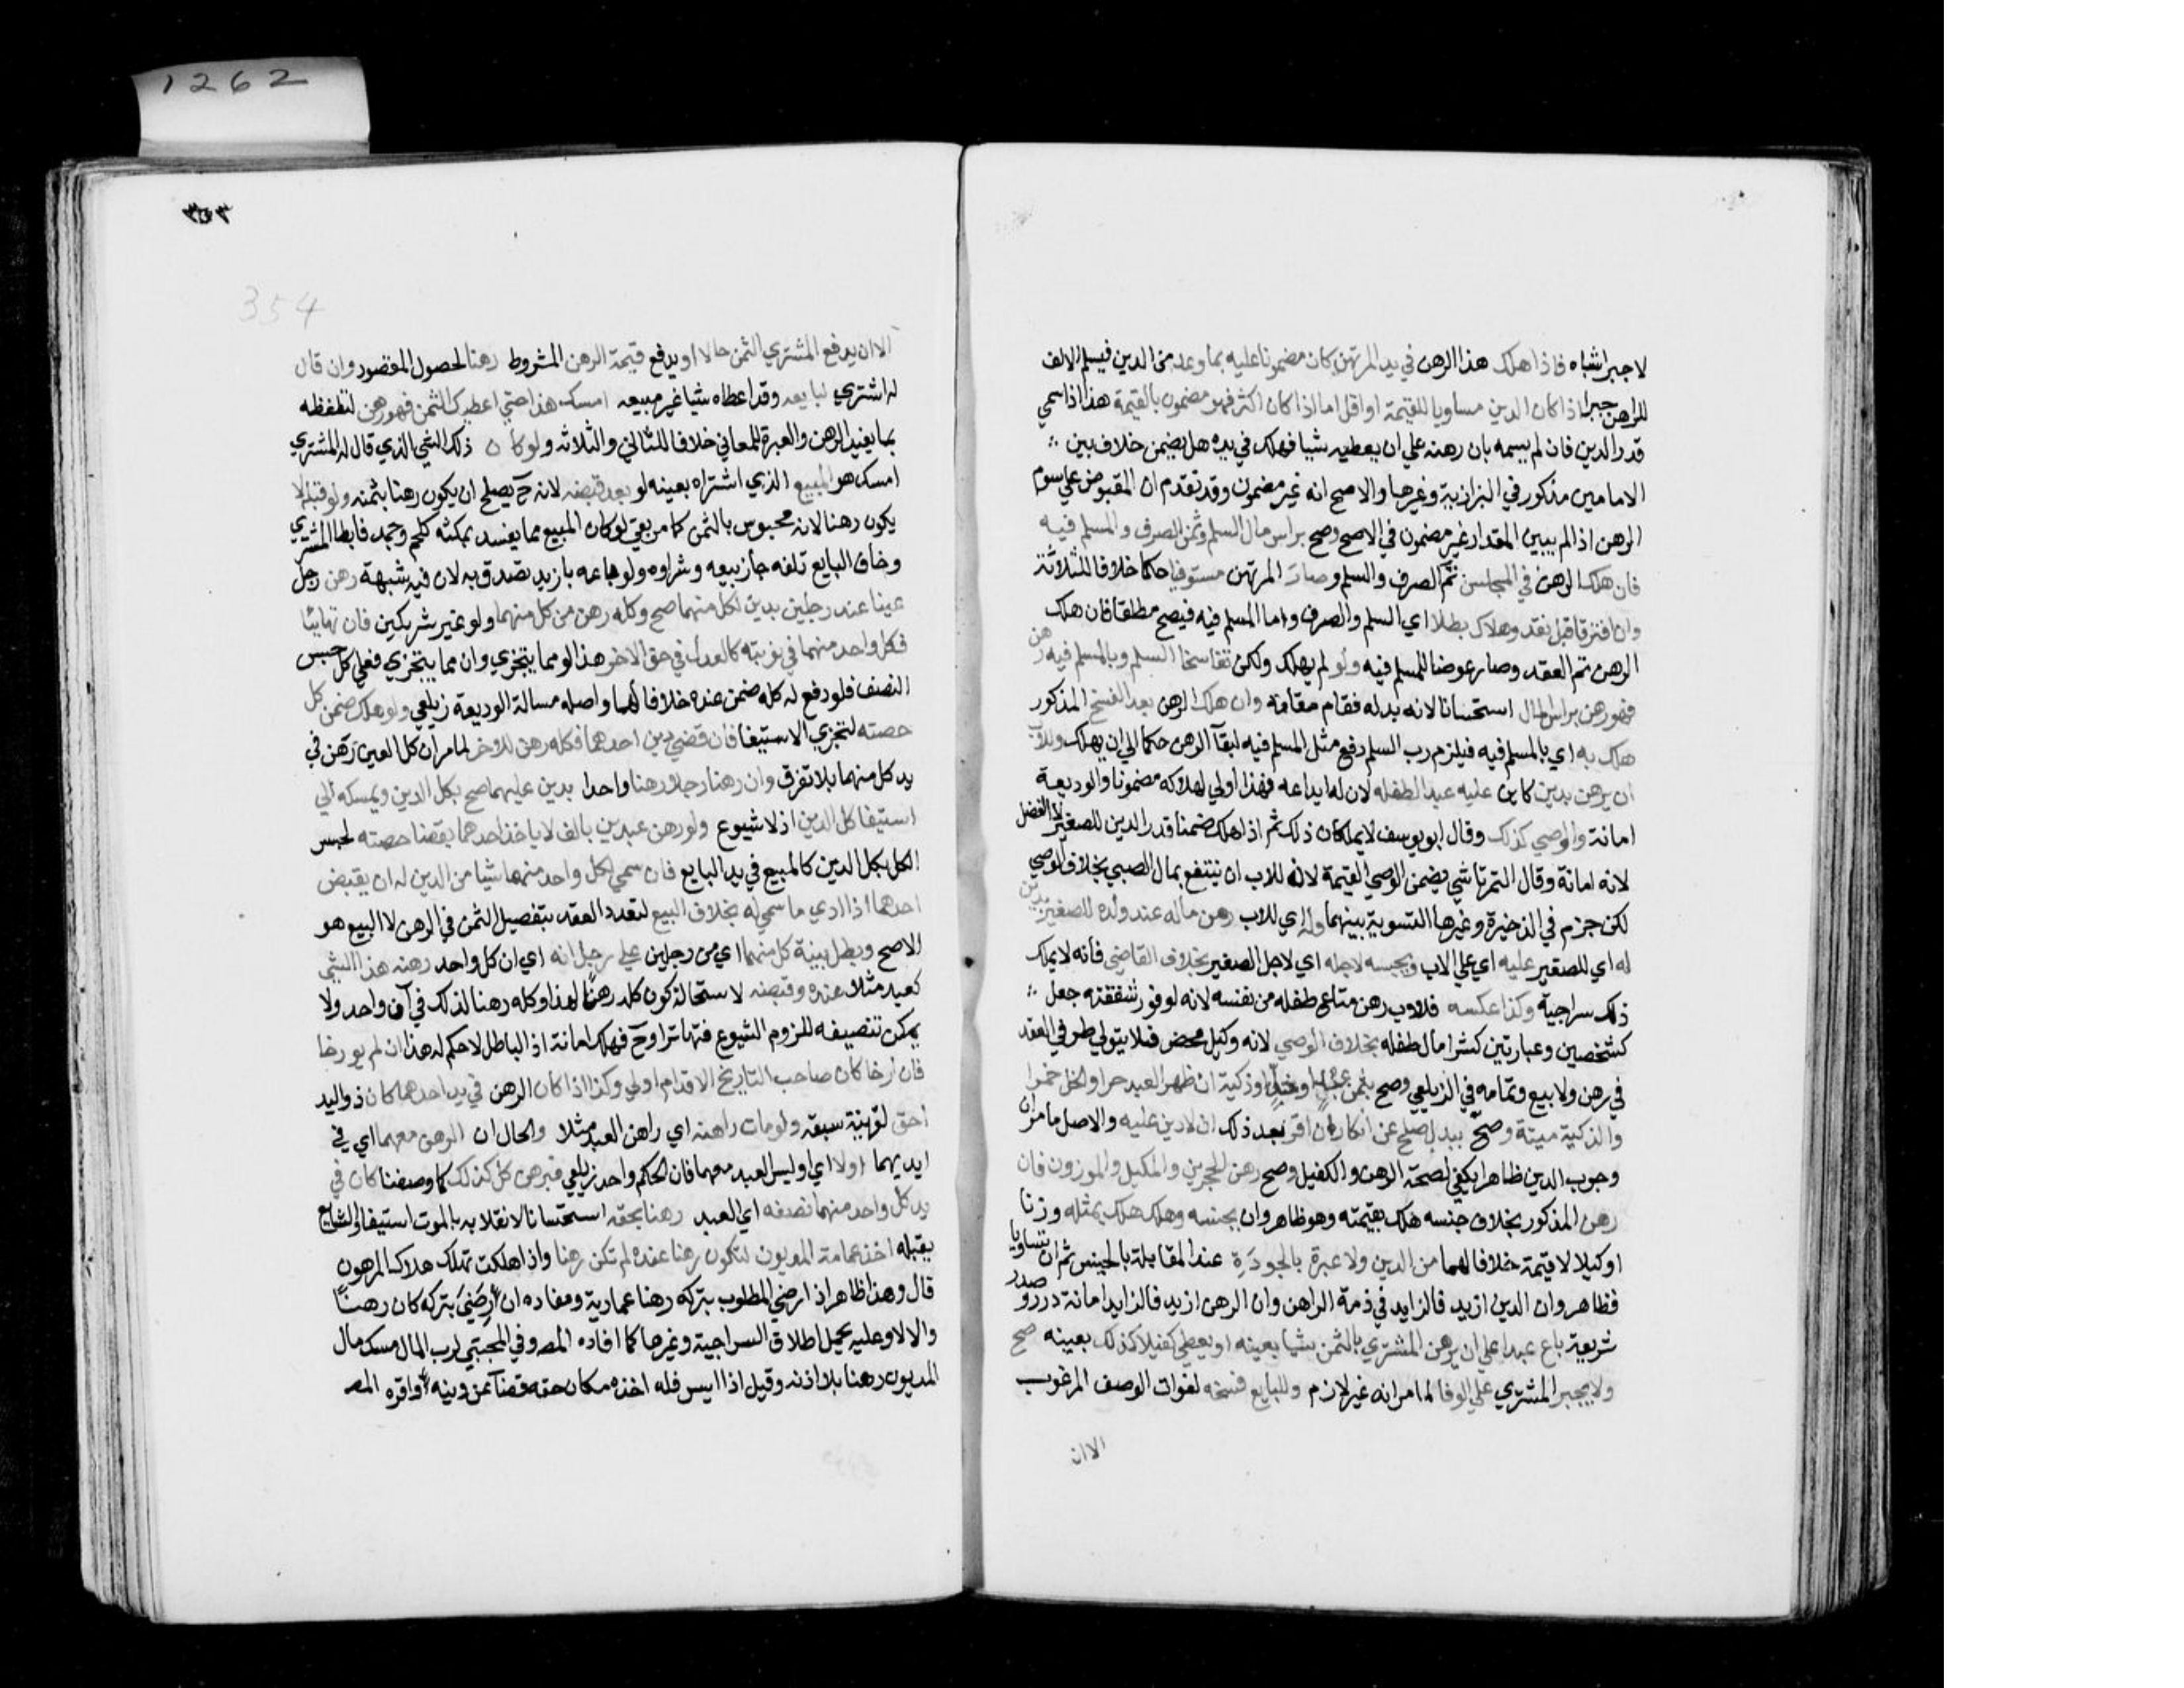 1262
لا جبر اشباه فاذا هلك هذا الرهن في يد المرتهن كان مضمونا عليه بما وعد من الدين فيسلم الالف
للراهن جبرا اذا كان الدين مساويا للقيمة او اقل اما اذا كان اكثر فهو مضمون بالقيمة هذا اذا سمي
قدر الدين فان لم يسمه بان رهنه علي ان يعطيه شيا فهلك في يده هل يضمن خلاف بين
الامامين مذكور في البزازية وغيرها والاصح انه غير مضمون وقد تقدم ان المقبوض علي سوم
الرهن اذا لم يبين المقدار غير مضمون في الاصح وصح براس مال السلم وثمن الصرف والمسلم فيه
فان هلك الرهن في المجلس تم الصرف والسلم وصار المرتهن مستوفيا حكما خلافا للثلاثة
وان افترقا قبل نقد وهلاك بطلا اي السلم والصرف واما المسلم فيه فيصح مطلقا فان هلك
الرهن تم العقد وصار عوضا للمسلم فيه ولو لم يهلك ولكن تفاسخا السلم وبالمسلم فيه رهن
فهو رهن براس المال استحسانا لانه بدله فقام مقامه وان هلك الرهن بعد الفسخ المذكور
هلك به اي بالمسلم فيه فيلزم رب السلم دفع مثل المسلم فيه لبقآ الرهن حكما الي ان يهلك وللاب
ان يرهن بدين كاين عليه عبدا لطفله لان له ايداعه فهذا اولي لهلاكه مضمونا والوديعة
امانة والوصي كذلك وقال ابو يوسف لا يملكان ذلك ثم اذا هلك ضمنا قدر الدين للصغير لا الفضل
لانه امانة وقال التمرتاشي يضمن الوصي القيمة لان للاب ان ينتفع بمال الصبي بخلاف الوصي
لكن جزم في الذخيرة وغيرها التسوية بينهما وله اي للاب رهن ماله عند ولده الصغير بدين
له اي للصغير عليه اي علي الاب ويحبسه لاجله اي لاجل الصغير بخلاف القاضي فانه لا يملك
ذلك سراجية وكذا عكسه فللاب رهن متاع طفله من نفسه لانه لوفور شفقته جعل
كشخصين وعبارتين كشرا مال طفله بخلاف الوصي لانه وكيل محض فلا يتولي طرفي العقد
في رهن ولا بيع وتمامه في الزيلعي وصح بثمن عبد او خل او ذكية ان ظهر العبد حرا والخل خمرا
والذكية ميتة وصح ببدل صلح عن انكار ان اقر بعد ذلك ان لا دين عليه والاصل ما مر ان
وجوب الدين ظاهرا يكفي لصحة الرهن والكفيل وصح رهن الحجرين والمكيل والموزون فان
رهن المذكور بخلاف جنسه هلك بقيمته وهو ظاهر وان بجنسه وهلك هلك بمثله وزنا
او كيلا لا قيمة خلافا لهما من الدين ولا عبرة بالجودة عند المقابلة بالجنس ثم ان تساويا
فظاهر وان الدين ازيد فالزايد في ذمة الراهن وان الرهن ازيد فالزايد امانة درر و صدر
شريعة باع عبدا علي ان يرهن المشتري بالثمن شيا بعينه او يعطي كفيلا كذلك بعينه صح
ولا يجبر المشتري علي الوفا لما مر انه غير لازم وللبايع فسخه لفوات الوصف المرغوب
الا ان
354
الا ان يدفع المشتري الثمن حالا او يدفع قيمة الرهن المشروط رهنا لحصول المقصود وان قال
له اشتري لبايعه وقد اعطاه شيا غير مبيعه امسك هذا حتي اعطيك الثمن فهو رهن لتلفظه
بما يفيد الرهن والعبرة للمعاني خلافا للثاني والثلاثه ولو كان ذلك الشي الذي قال له المشتري
امسك هو المبيع الذي اشتراه بعينه لو بعد قبضه لانه ح يصلح ان يكون رهنا بثمنه ولو قبله لا
يكون رهنا لانه محبوس بالثمن كما مر بقي لو كان المبيع مما يفسد بمكثه كلحم وجمد فابطا المشتري
وخاف البايع تلفه جاز بيعه وشراوه ولو باعه بازيد تصدق به لان فيه شبهة رهن رجل
عينا عند رجلين بدين لكل منهما صح وكله رهن من كل منهما ولو غير شريكين فان تهايئا
فكل واحد منهما في نوبته كالعدل في حق الاخر هذا لو مما يتجزي وان مما يتجزي فعلي كل حبس
النصف فلو دفع له كله ضمن عنده خلافا لهما واصله مسالة الوديعة زيلعي ولو هلك ضمن كل
حصته لتجزي الاستيفا فان قضي دين احدهما فكله رهن للاخر لما مر ان كل العين رهن في
يد كل منهما بلا تفرق وان رهنا رجلا رهنا واحدا بدين عليهما صح بكل الدين ويمسكه الي
استيفا كل الدين اذ لا شيوع ولو رهن عبدين بالف لا ياخذ احدهما بقضا حصته لحبس
الكل بكل الدين كالمبيع في يد البايع فان سمي لكل واحد منهما شيا من الدين له ان يقبض
احدهما اذا ادي ما سمي له بخلاف البيع لتعدد العقد بتفصيل الثمن في الرهن لا البيع هو
الاصح وبطل بينة كل منهما اي من رجلين علي رجل انه اي ان كل واحد رهنه هذا الشي
كعبد مثلا عنده وقبضه لاستحالة كون كله رهنا لهذا وكله رهنا لذلك في آن واحد ولا
يمكن تنصيفه للزوم الشيوع فتهاترا وح فهلك امانة اذ الباطل لا حكم له هذا ان لم يورخا
فان ارخا كان صاحب التاريخ الاقدم اولي وكذا اذا كان الرهن في يد احدهما كان ذو اليد
احق لقرينة سبقه ولو مات راهنه اي راهن العبد مثلا والحال ان الرهن معهما اي في
ايديهما اولا اي او ليس العبد معهما فان الحكم واحد زيلعي فبرهن كل كذلك كما وصفنا كان في
يد كل واحد منهما نصفه اي العبد رهنا بحقه استحسانا لانقلابه بالموت استيفا والشايع
يقبله اخذ عمامة المديون لتكون رهنا عنده لم تكن رهنا واذا هلكت تهلك هلاك المرهون
قال وهذا ظاهر اذا رضي المطلوب بتركه رهنا عمادية ومفاده ان رضي بتركه كان رهنا
والا لا وعليه يحمل اطلاق السراجية وغيرها كما افاده المصـ وفي المجتبي لرب المال مسك مال
المديون رهنا بلا اذنه وقيل اذا ايس فله اخذه مكان حقه قضآ عن دينه واقره المصـ